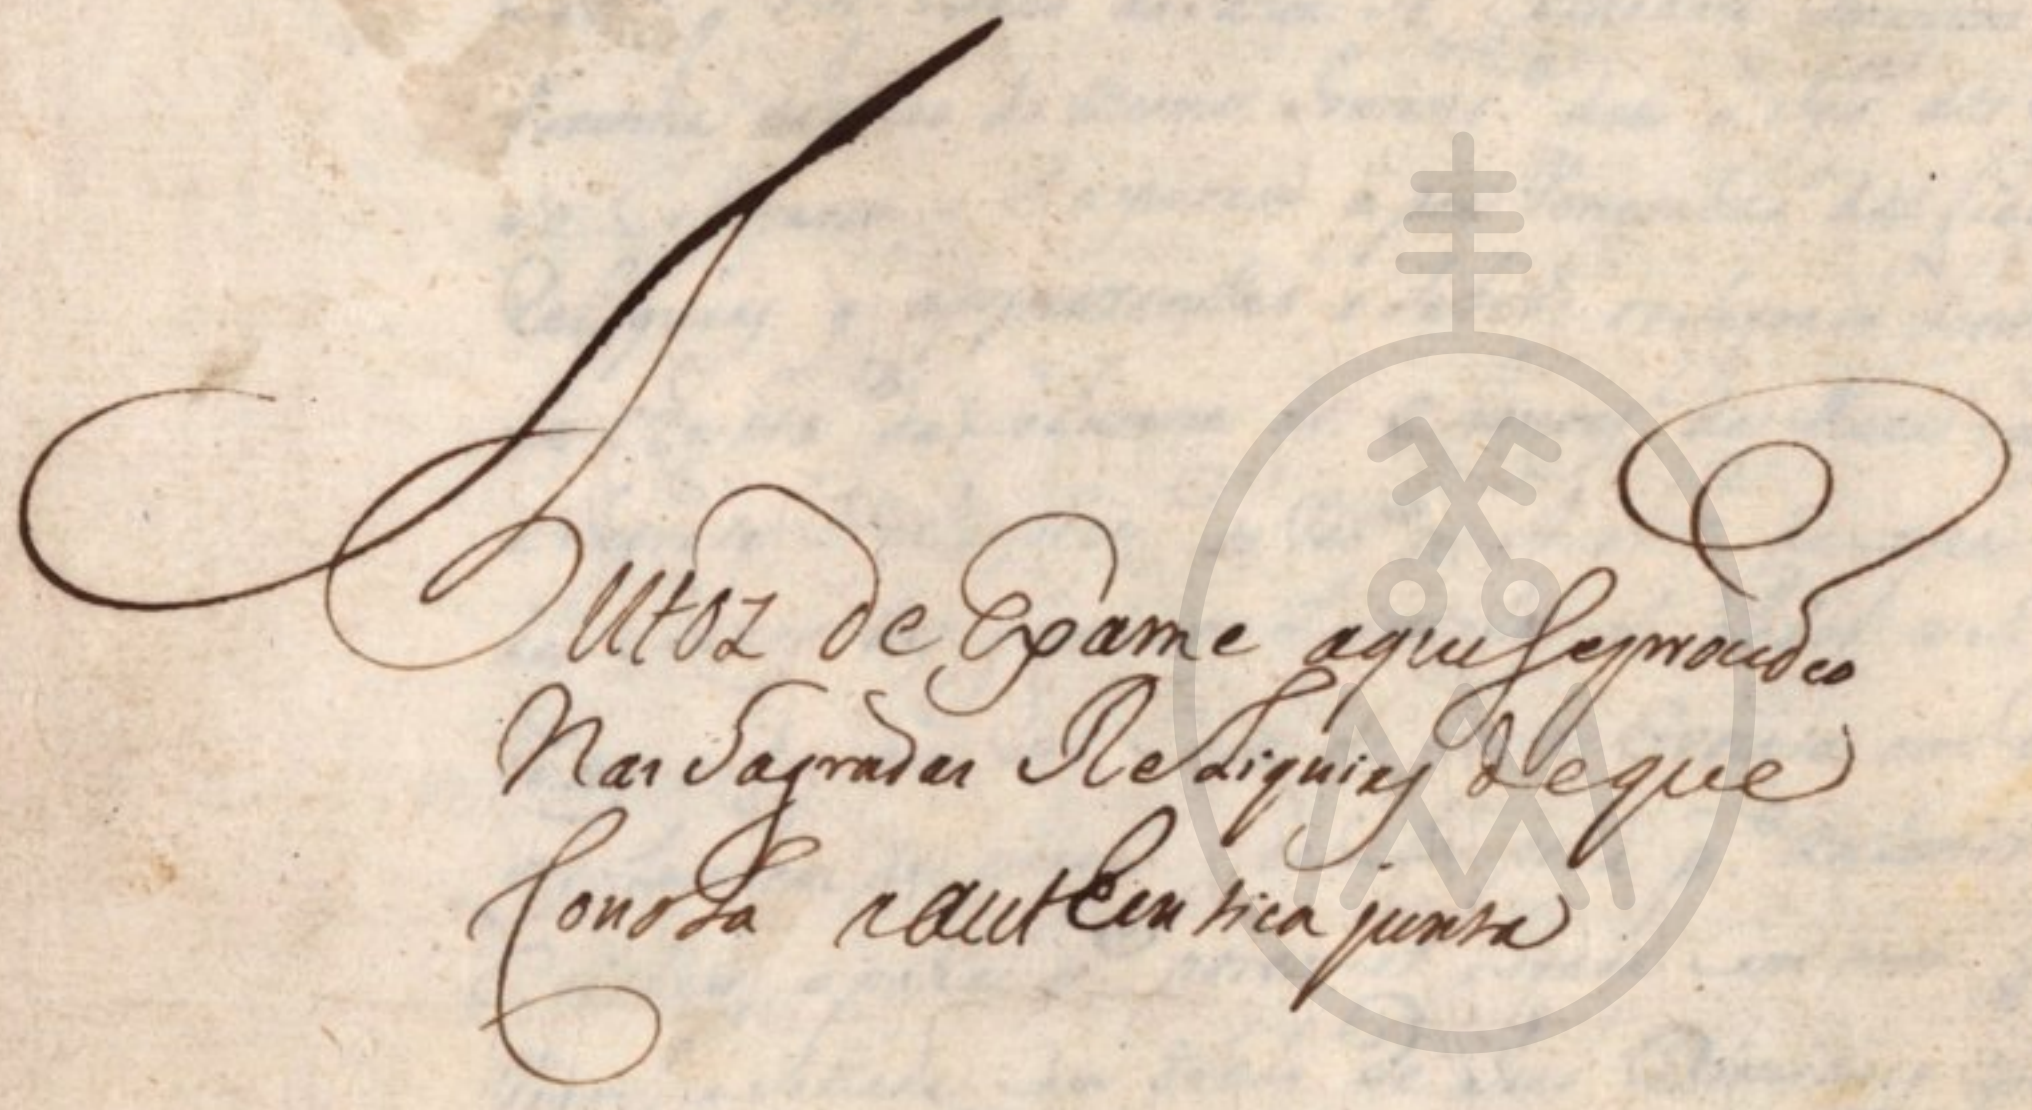 Autoz de Exame aque se procedeo
Nas Sagradas Reliquias de que
Consta a autentica junta